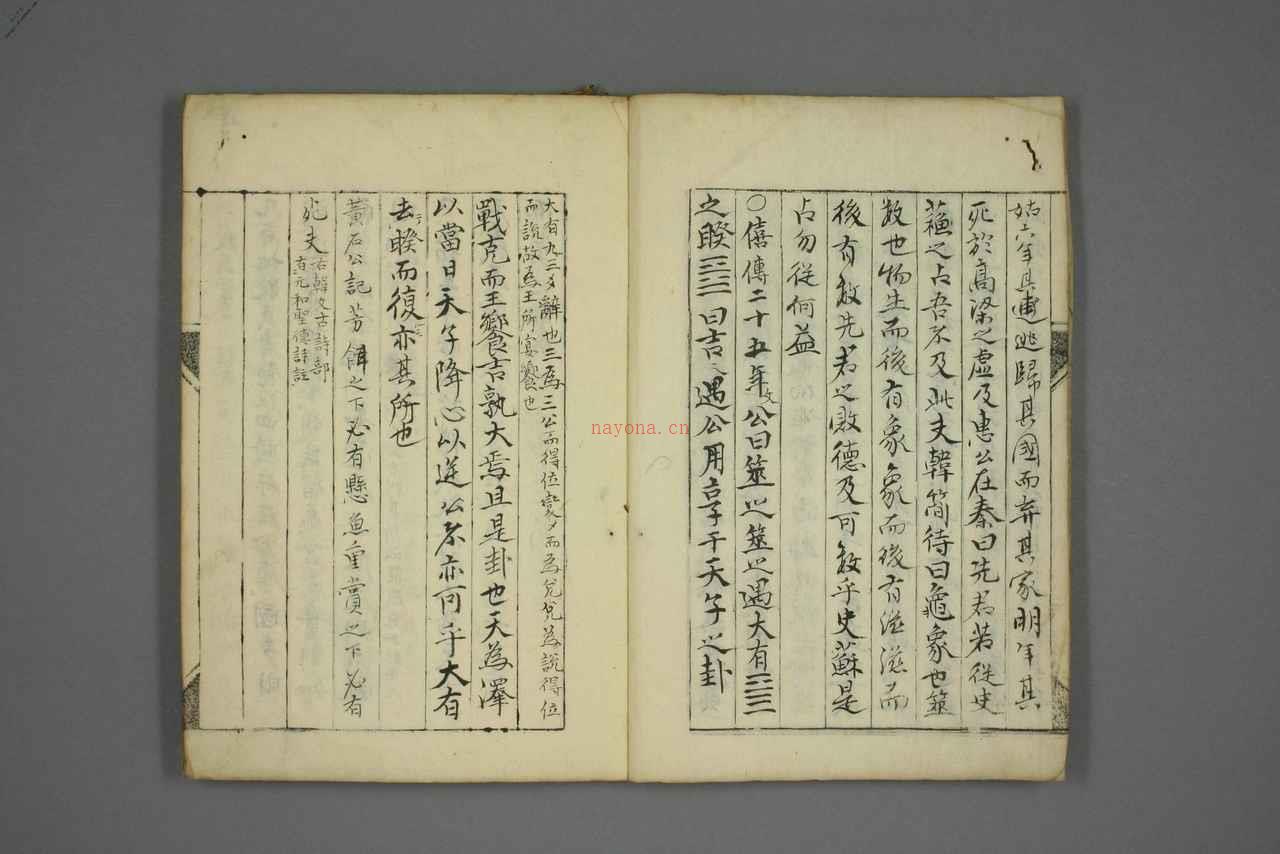 姑六年其逋逃歸其國而弃其家明年其
死於高梁之虛及惠公在秦曰先君若從史
蘓之占吾不及此夫韓簡待曰龜象也筮
数也物生而後有象象而後有滋滋而
後有数先君之敗德及可数乎史蘇是
占勿從何益
○僖傳二十五年公曰筮之筮之遇大有䷍
之睽䷥曰吉遇公用享于天子之卦
大有九三爻辭也三為三公而得位變而為兌兌為說得位
而說故為王所宴饗也
戰克而王饗吉孰大焉且是卦也天為澤
以當日天子降心以逆公不亦可乎大有
去睽而復亦其所也
黃石公記芳餌之下必有懸魚重賞之下必有
死夫
右韓文古詩部
有元和聖德詩註
nayona.cn